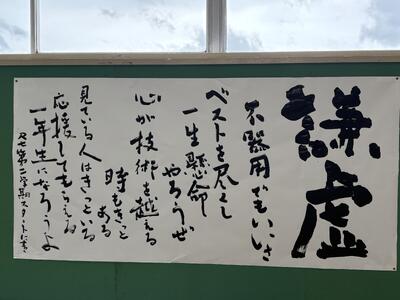 謙虚
不器用でもいいさ
ベストを尽くし
一生懸命
やろうぜ
心が技術を越える
時もきっと
ある
見ている人はきっといる
応援してもらえる
一年生になろうよ
第二学期スタートに